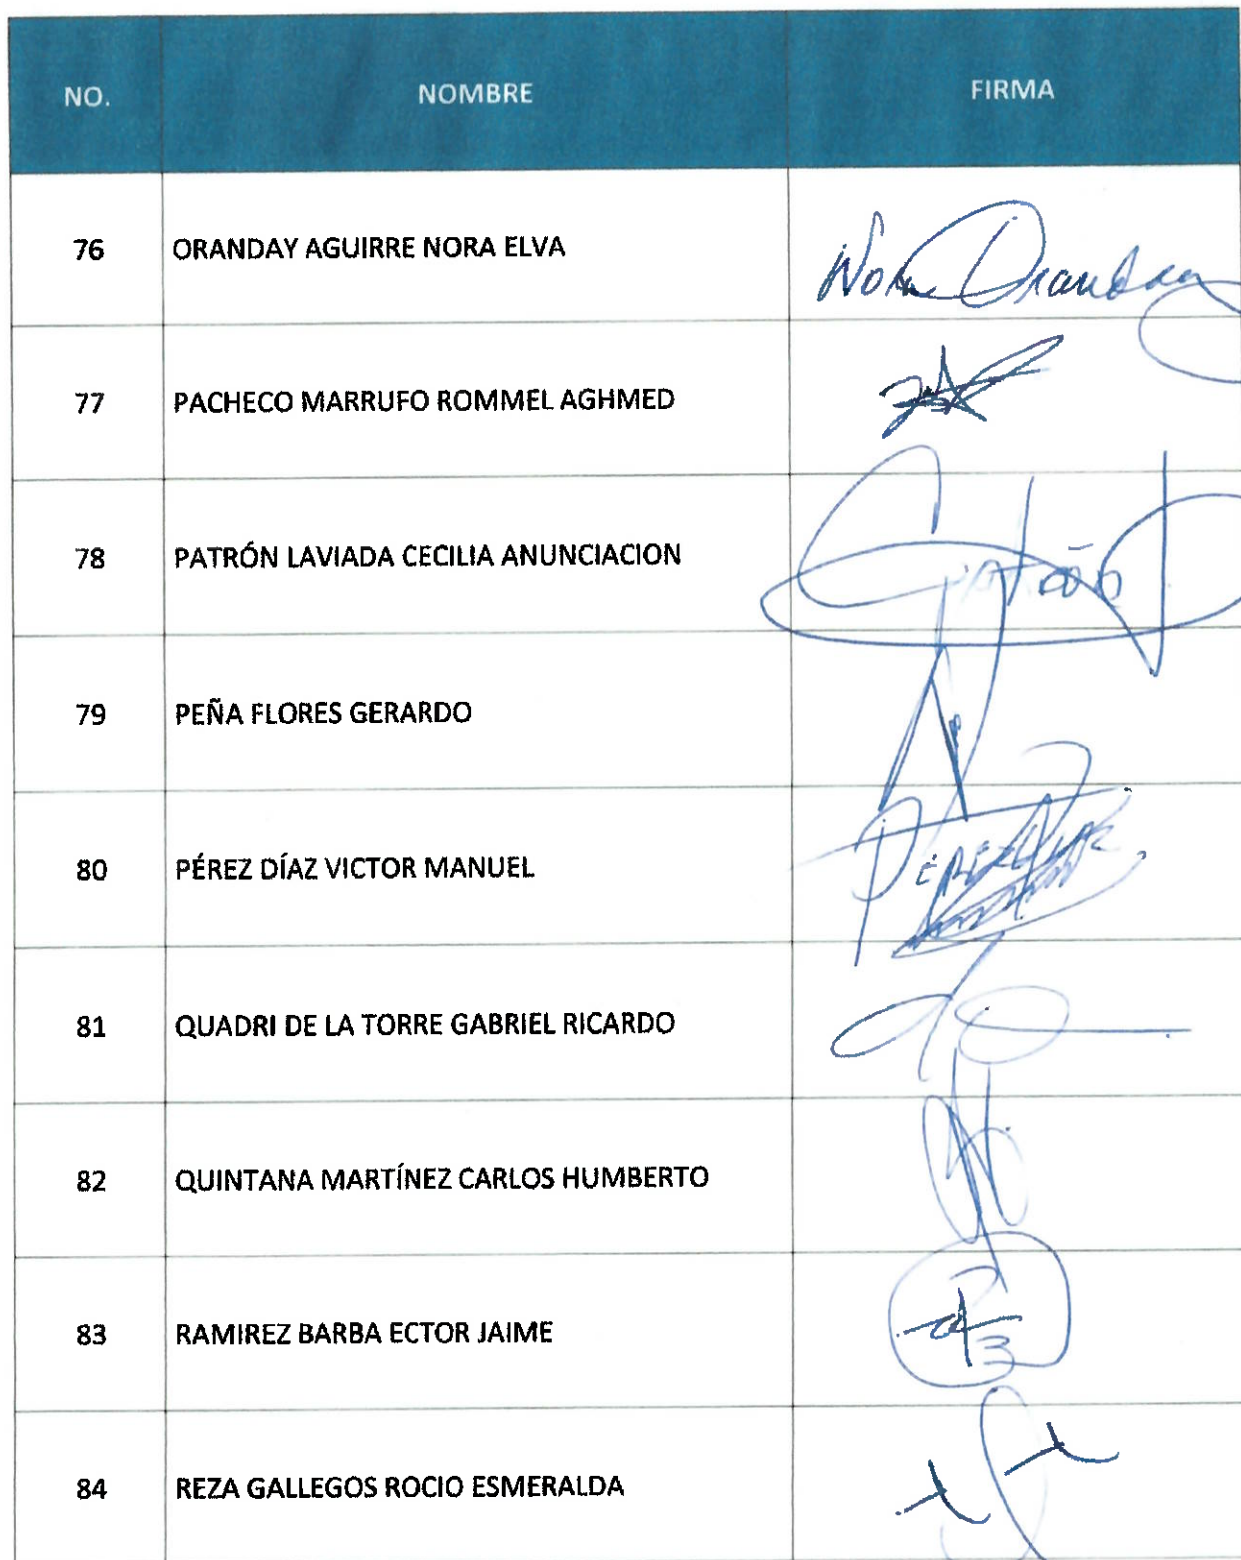 NO. NOMBRE FIRMA
76 ORANDAY AGUIRRE NORA ELVA Nora Oranday
77 PACHECO MARRUFO ROMMEL AGHMED
78 PATRÓN LAVIADA CECILIA ANUNCIACION
79 PEÑA FLORES GERARDO
80 PÉREZ DÍAZ VICTOR MANUEL PÉREZ DÍAZ
81 QUADRI DE LA TORRE GABRIEL RICARDO
82 QUINTANA MARTÍNEZ CARLOS HUMBERTO
83 RAMIREZ BARBA ECTOR JAIME
84 REZA GALLEGOS ROCIO ESMERALDA